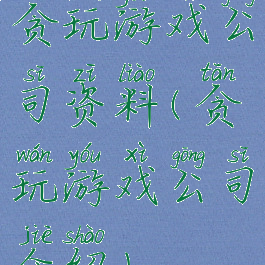 贪玩游戏公
sī zī liào ( tān
司资料(贪
wán yóu xì gōng sī
玩游戏公司
jiè shào
介绍)